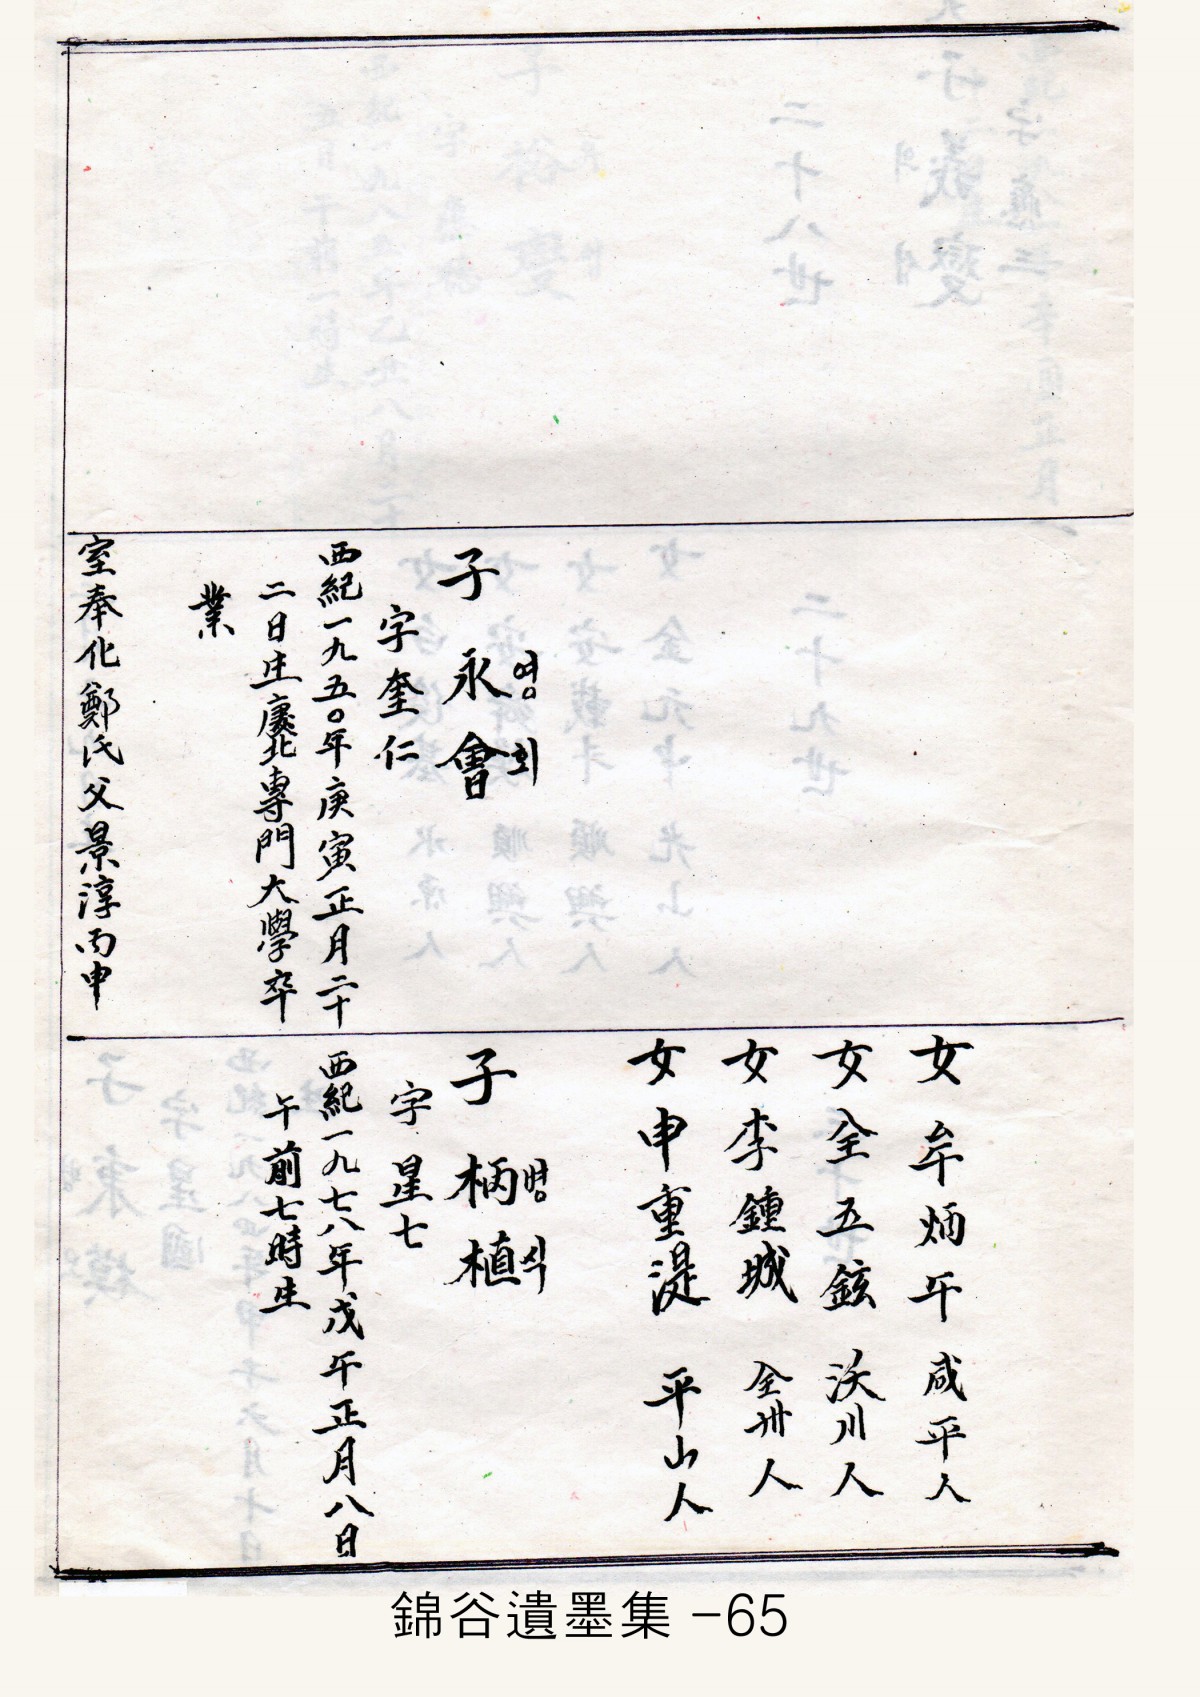 子 永會
영회
字奎仁
西紀一九五〇年庚寅正月二十
二日生慶北專門大學卒
業
室奉化鄭氏父景淳丙申
女 牟炳午 咸平人
女 全五鉉 沃川人
女 李鍾城 全州人
女 申重湜 平山人
子 柄植
병식
字星七
西紀一九七八年戊午正月八日
午前七時生
錦谷遺墨集 -65